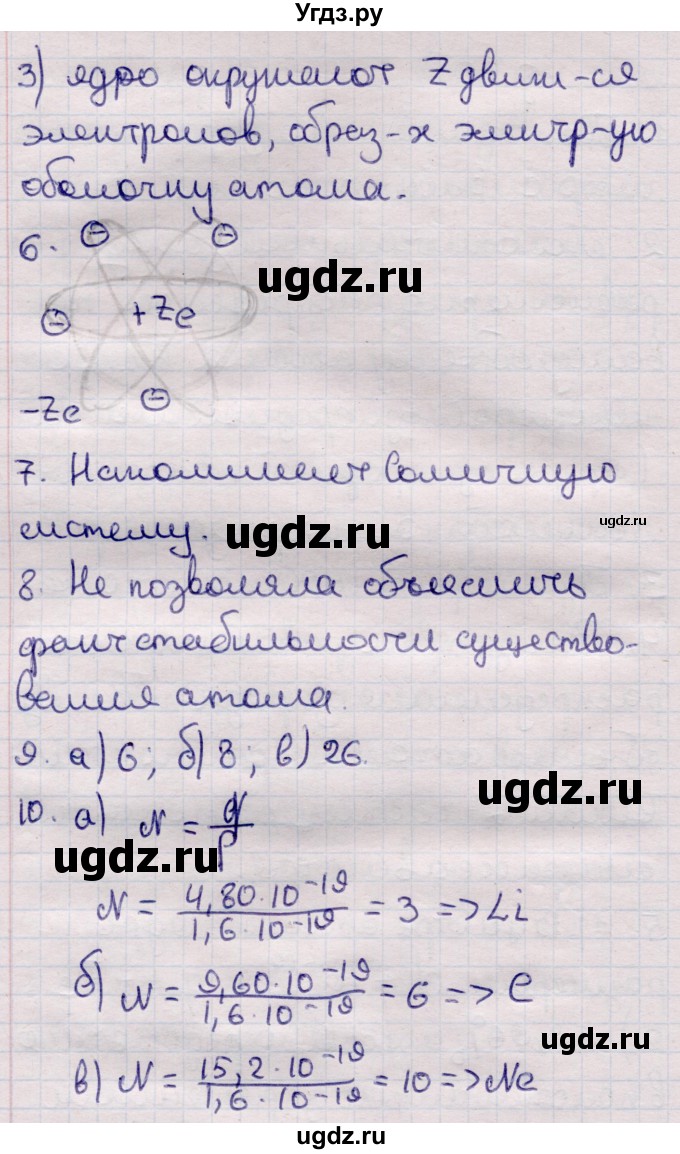 Угдз.ру
3) ядро окружают Z движ-ся
электронов, образ-х электр-ую
оболочку атома.
6. ⊖ ⊖
ugdz.ru
⊖ +Ze
-Ze ⊖
7. Напоминает Солнечную
ugdz.ru
систему. ugdz.ru
8. Не позволяла объяснить
факт стабильности существо-
вания атома.
9. а) 6; б) 8; в) 26.
ugdz.ru
10. а) N = q/p
ugdz.ru
N = 4,80·10⁻¹⁹/1,6·10⁻¹⁹ = 3 => Li
б) N = 9,60·10⁻¹⁹/1,6·10⁻¹⁹ = 6 => C
ugdz.ru
в) N = 15,2·10⁻¹⁹/1,6·10⁻¹⁹ = 10 => Ne
ugdz.ru